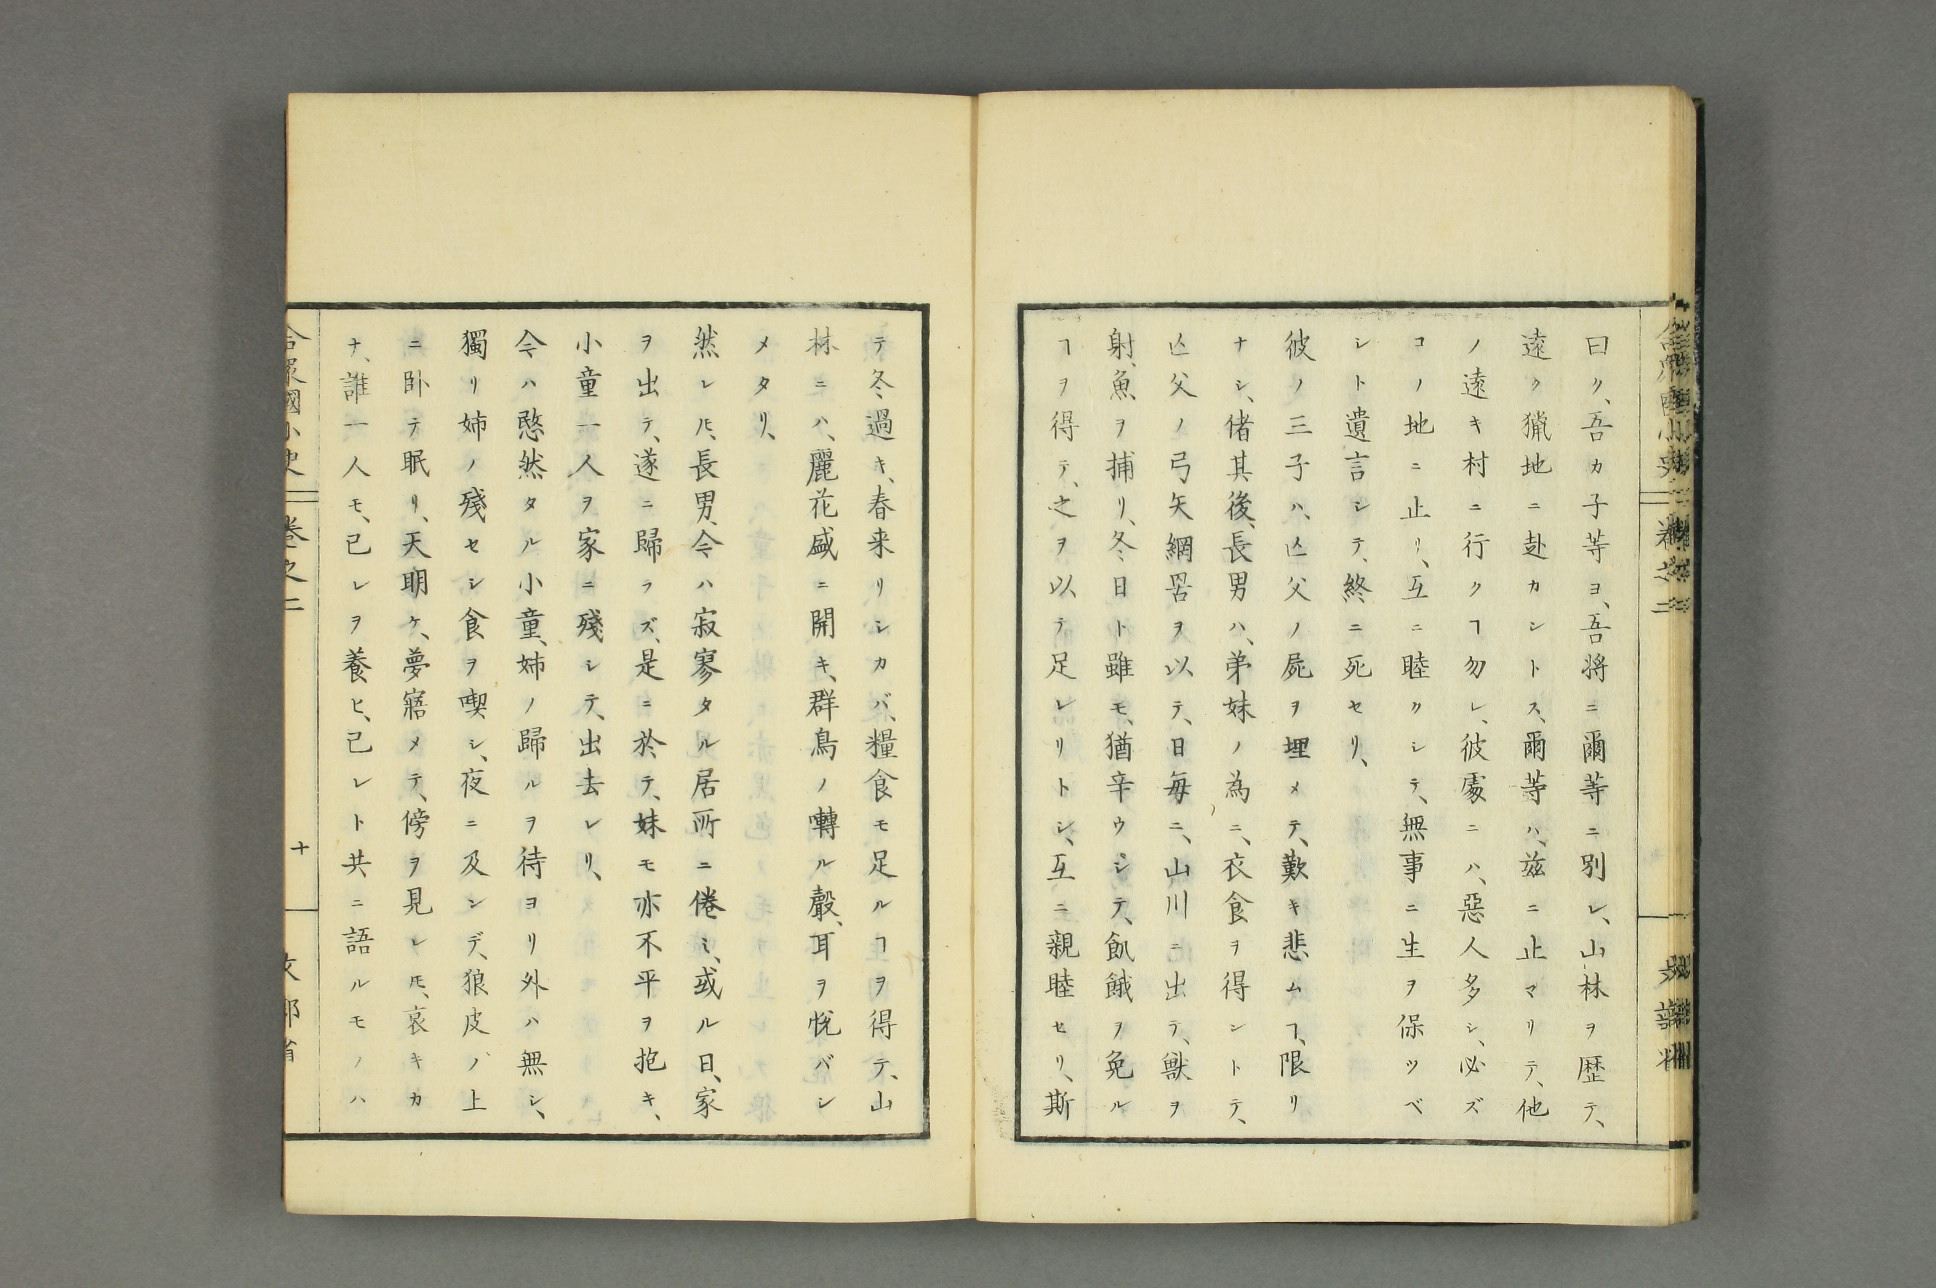 曰ク、吾カ子等ヨ、吾将ニ爾等ニ別レ、山林ヲ歴テ、
遠ク猟地ニ赴カントス、爾等ハ、茲ニ止マリテ、他
ノ遠キ村ニ行クヿ勿レ、彼處ニハ、惡人多シ、必ズ
コノ地ニ止リ、互ニ睦クシテ、無事ニ生ヲ保ツベ
シト遺言シテ、終ニ死セリ、
彼ノ三子ハ、亡父ノ屍ヲ埋メテ、歎キ悲ムヿ、限リ
ナシ、偖其後、長男ハ、弟妹ノ為ニ、衣食ヲ得ントテ、
亡父ノ弓矢網罟ヲ以テ、日毎ニ、山川ニ出テ、獣ヲ
射、魚ヲ捕リ、冬日ト雖モ、猶辛ウシテ、飢餓ヲ免ル
ヿヲ得テ、之ヲ以テ足レリトシ、互ニ親睦セリ、斯
テ冬過キ、春来リシカバ、糧食モ足ルヿヲ得テ、山
林ニハ、麗花盛ニ開キ、群鳥ノ囀ル聲、耳ヲ悦バシ
メタリ、
然レ𪜈、長男、今ハ寂寥タル居所ニ倦ミ、或ル日、家
ヲ出テ、遂ニ歸ラズ、是ニ於テ、妹モ亦不平ヲ抱キ、
小童一人ヲ家ニ殘シテ、出去レリ、
今ハ愍然タル小童、姉ノ歸ルヲ待ヨリ外ハ無シ、
獨リ姉ノ殘セシ食ヲ喫シ、夜ニ及ンデ、狼皮ノ上
ニ卧テ眠リ、天明ケ、夢寤メテ、傍ヲ見レ𪜈、哀キカ
ナ、誰一人モ、己レヲ養ヒ、己レト共ニ語ルモノハ
合衆國小史 巻之二 十 文部省